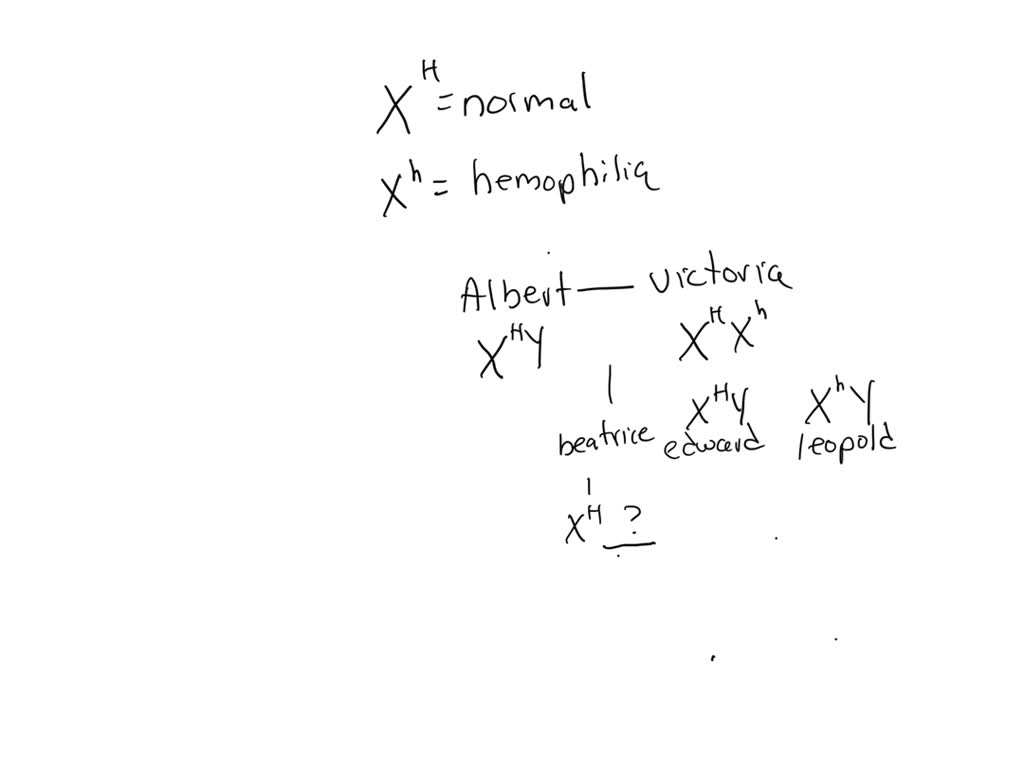 X^H = normal
X^h = hemophilia
Albert — Victoria
X^H Y X^H X^h
X^H Y X^h Y
beatrice edward leopold
X^H ?